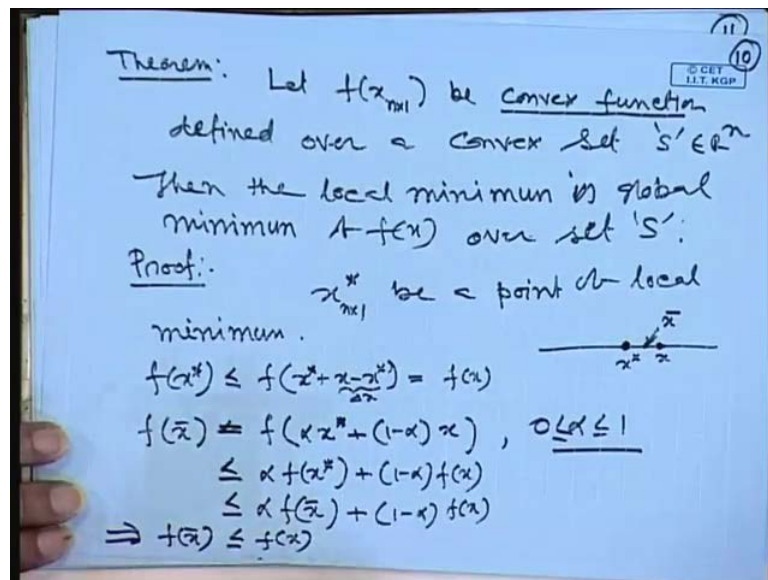 11
10
© CET
I.I.T. KGP
Theorem: Let f(x_{n×1}) be convex function
defined over a convex set 'S' ∈ R^n
Then the local minimum is global
minimum of f(x) over set 'S'.
Proof:.
x*_{n×1} be a point of local
minimum.
x̄
x* x
f(x*) ≤ f(x* + x - x*) = f(x)
Δx
f(x̄) = f(αx* + (1-α)x), 0 ≤ α ≤ 1
≤ αf(x*) + (1-α)f(x)
≤ αf(x̄) + (1-α)f(x)
⇒ f(x̄) ≤ f(x)